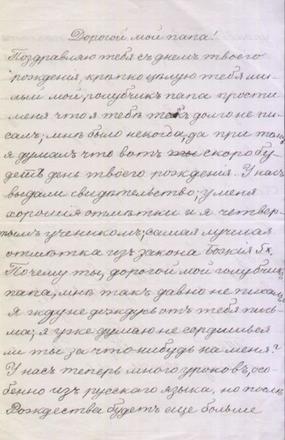 Дорогой мой папа!
Поздравляю тебя съ днемъ твоего
рожденія, крѣпко цѣлую тебя ми-
лый мой, голубчикъ папа прости
меня что я тебѣ такъ долго не пи-
салъ; мнѣ было некогда, да при томъ
я думалъ что вотъ скоро бу-
детъ день твоего рожденія. У насъ
выдали свидѣтельство; у меня
хорошія отмѣтки и я четвер-
тымъ ученикомъ; самая лучшая
отмѣтка изъ закона Божія 5.
Почему ты, дорогой мой голубчикъ
папа, мнѣ такъ давно не писалъ
я жду не дождусь отъ тебя пись-
ма; я уже думаю не сердишься
ли ты за что нибудь на меня?
У насъ теперь много уроковъ, осо-
бенно изъ русскаго языка, но послѣ
Рождества будетъ еще больше